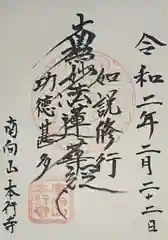 令和二年二月二十二日
如説修行
南無妙法蓮華経
功徳甚多
南向山 本行寺